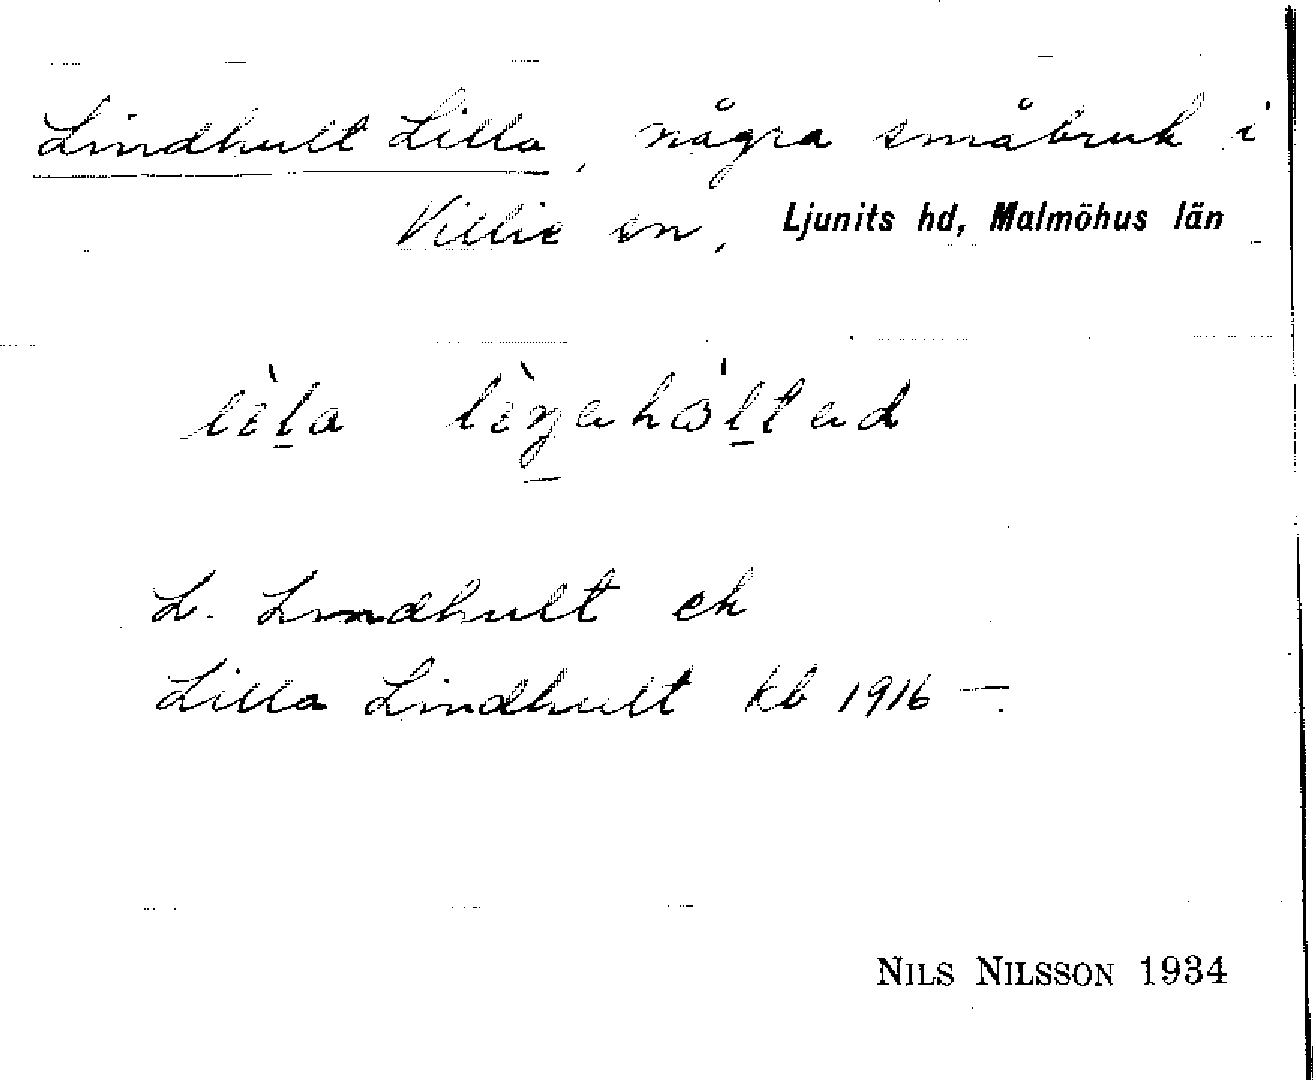 Lindhult Lilla, några småbruk i
Villie sn, Ljunits hd, Malmöhus län
L. Lindhult ek
Lilla Lindhult kb 1916 —.
NILS NILSSON 1934